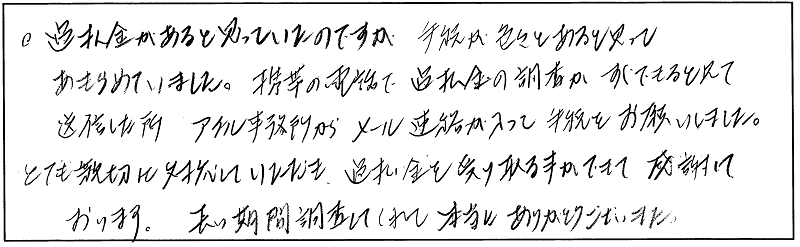 過払金があると思っていたのですが 手続が色々とあると思って
あきらめていました。携帯の電話で 過払金の調査が すぐできると見て
送信した所 アイル事務所から メール連絡が入って 手続をお願いしました。
とても親切に対応していただき、過払い金を受け取る事ができて 感謝して
おります。 長い期間調査してくれて 本当にありがとうございました。